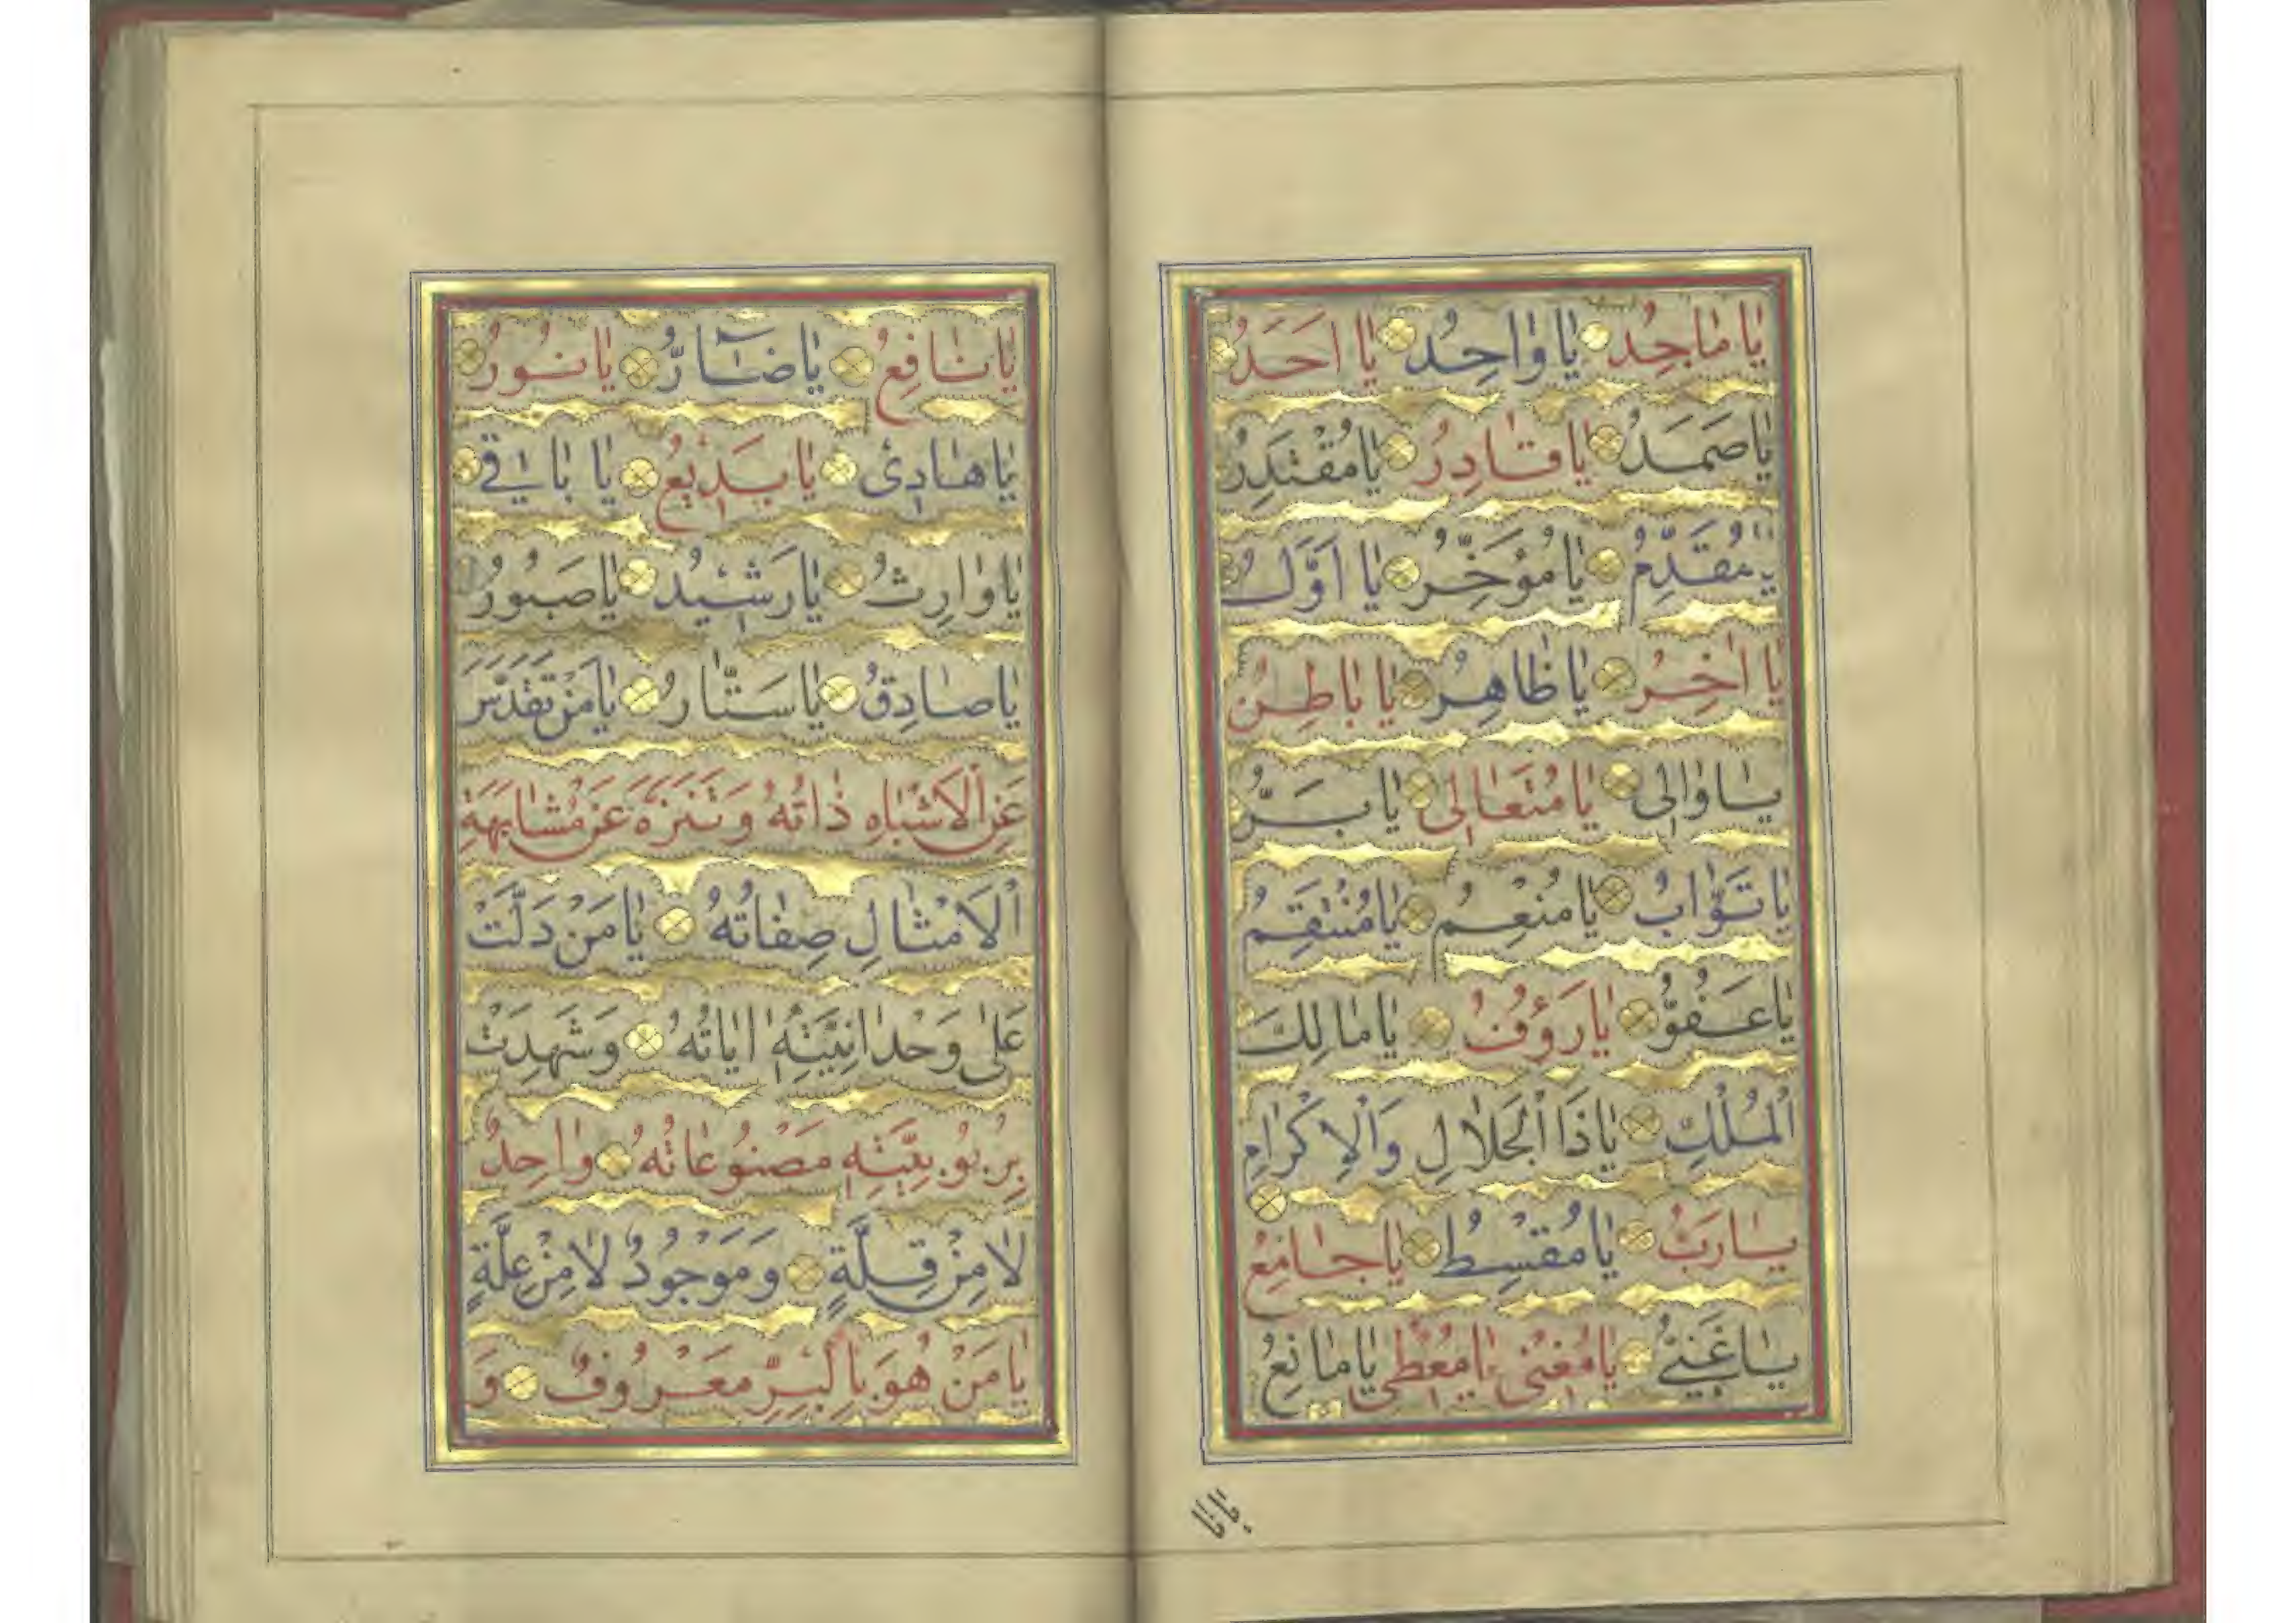 يا ماجِدُ يا واحِدُ يا اَحَدُ
يا صَمَدُ يا قادِرُ يا مُقْتَدِرُ
يا مُقَدِّمُ يا مُؤَخِّرُ يا اَوَّلُ
يا اخِرُ يا ظاهِرُ يا باطِنُ
يا والى يا مُتَعالى يا بَرُّ
يا تَوّابُ يا مُنْعِمُ يا مُنْتَقِمُ
يا عَفُوُّ يا رَؤُفُ يا مالِكَ
الْمُلْكِ يا ذَا الْجَلالِ وَالْاِكْرامِ
يا رَبُّ يا مُقْسِطُ يا جامِعُ
يا غَنِىُّ يا مُغْنى يا مُعْطى يا مانِعُ
يا نا
يا نافِعُ يا ضآرُّ يا نُورُ
يا هادِئُ يا بَديعُ يا باقى
يا وارِثُ يا رَشيدُ يا صَبُورُ
يا صادِقُ يا سَتّارُ يا مَنْ تَقَدَّسَ
عَنِ الْاَشْباهِ ذاتُهُ وَتَنَزَّهَ عَنْ مُشابَهَةِ
الْاَمْثالِ صِفاتُهُ يا مَنْ دَلَّتْ
عَلى وَحْدانِيَّتِهِ اياتُهُ وَشَهِدَتْ
بِرُبُوبِيَّتِهِ مَصْنُوعاتُهُ واحِدٌ
لا مِنْ قِلَّةٍ وَمَوْجُودٌ لا مِنْ عِلَّةٍ
يا مَنْ هُوَ بِالْبِرِّ مَعْرُوفٌ وَ